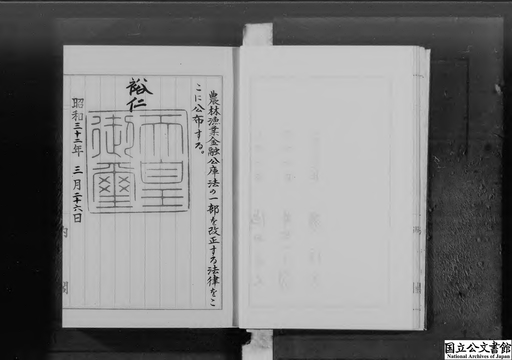 農林漁業金融公庫法の一部を改正する法律をこ
こに公布する。
裕仁
天皇
御璽
昭和三十二年三月二十六日
内閣
国立公文書館
National Archives of Japan